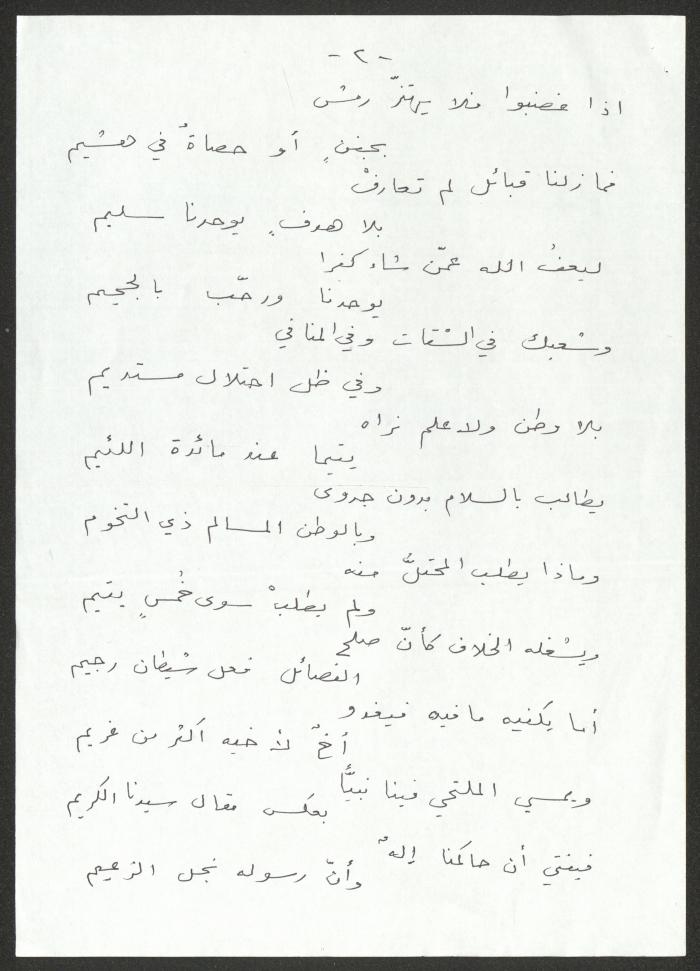 - ٢ -
اذا غضبوا فلا يهتزّ رمش
بجفنٍ أو حصاةٌ في هشيم
فما زلنا قبائل لم تعارفْ
بلا هدفٍ يوحدنا سليم
ليعفُ الله عمّن شاء كفرا
يوحدنا ورحّب بالجحيم
وشعبك في الشتات وفي المنافي
وفي ظل احتلال مستديم
بلا وطن ولا علم نراه
يتيما عند مائدة اللئيم
يطالب بالسلام بدون جدوى
وبالوطن المسالم ذي التخوم
وماذا يطلب المحتلُّ منه
ولم يطلبْ سوى خُمسٍ يتيم
ويشغله الخلاف كأنّ صلح
الفصائل فعل شيطان رجيم
أما يكفيه ما فيه فيغدو
أخٌ لأخيه اكثر من غريم
ويمسي الملتحي فينا نبيًّا
بعكس مقال سيدنا الكريم
فيفتي أن حاكمنا إلهٌ
وأنّ رسوله نجل الزعيم